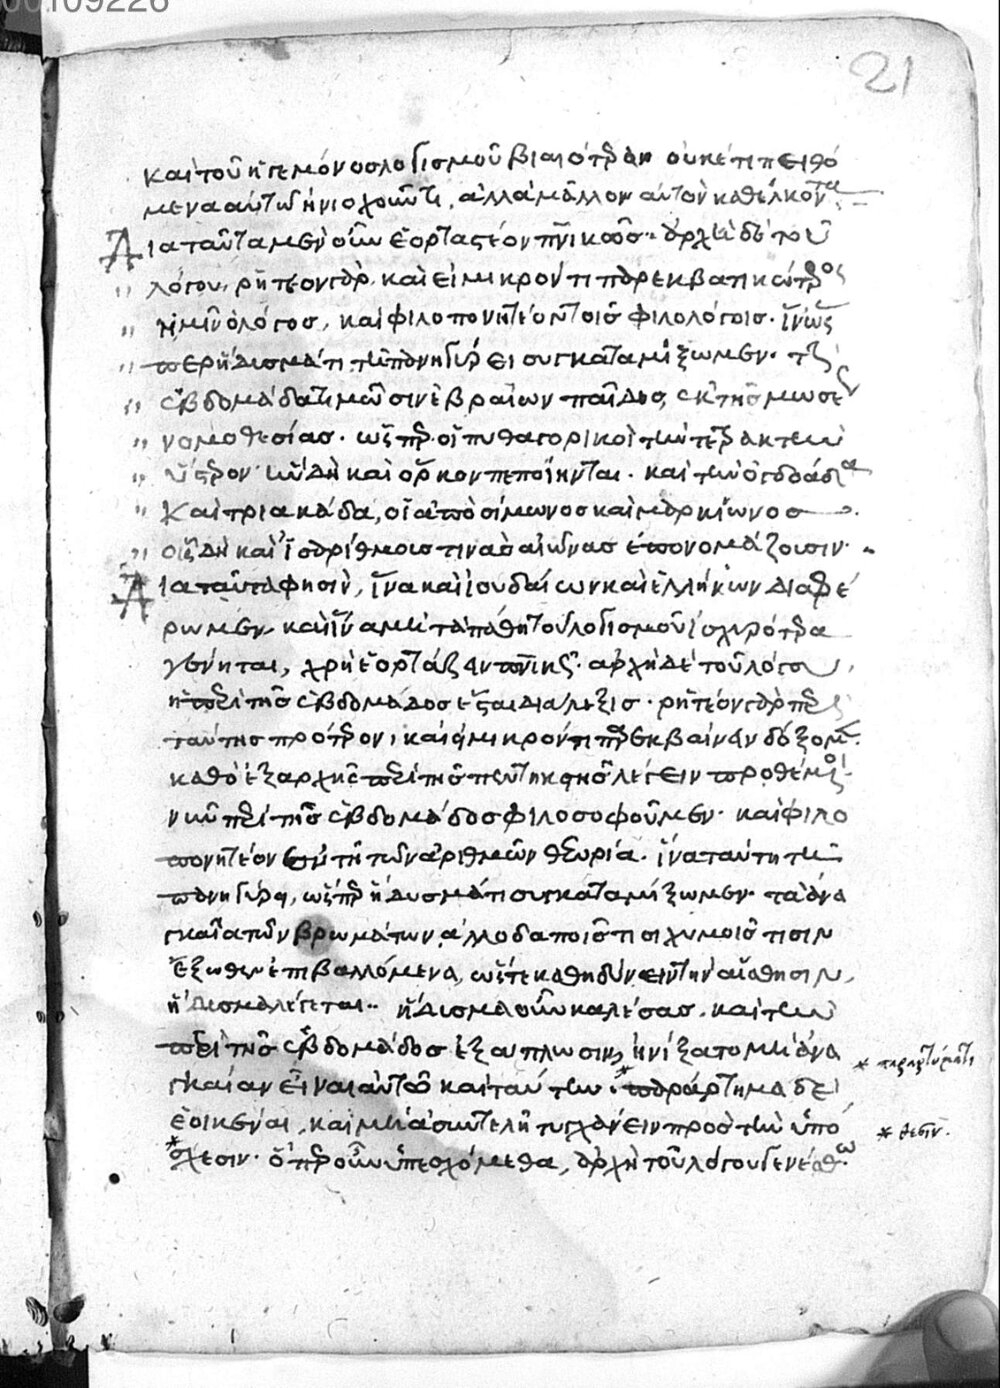 00109226
21
καὶ τοῦ ἡγεμόνος λογισμοῦ βιαιότερα οὐκέτι πειθό
μενα αὐτῷ ἡνιοχοῦντι, ἀλλὰ μᾶλλον αὐτὸν καθέλκοντα
Διὰ ταῦτα μὲν οὖν ἑορταστέον πνικῶς. ἀρχὴ δὲ τοῦ
λόγου, ῥητέον γὰρ, καὶ εἰ μικρόν τι παρεκβατικώτερος
ἡμῖν ὁ λόγος, καὶ φιλοπονητέον τοῖς φιλολόγοις. ἵν' ὥς
περ ἥδυσμά τι τῇ πανηγύρει συγκαταμίξωμεν. τὴν
ἑβδομάδα τιμῶσιν ἑβραίων παῖδες, ἐκ τῆς μωσέως
νομοθεσίας. ὥσπερ οἱ πυθαγορικοὶ τὴν τετρακτὺν
ὕστερον ἣν δὴ καὶ ὅρκον πεποίηνται. καὶ τὴν ὀγδοάδα
καὶ τριακάδα, οἱ ἀπὸ σίμωνος καὶ μαρκίωνος
οἷς δὴ καὶ ἰσαρίθμοις τινὰς αἰῶνας ἐπονομάζουσιν.
Διὰ ταῦτα φησὶν, ἵνα καὶ ἰουδαίων καὶ ἑλλήνων διαφέ
ρωμεν, καὶ ἵνα μὴ τὰ πάθη τοῦ λογισμοῦ ἰσχυρότερα
γένηται, χρὴ ἑορτάζειν πνικῶς. ἀρχὴ δὲ τοῦ λόγου,
ἡ περὶ τῆς ἑβδομάδος ἔσται διάλεξις. ῥητέον γὰρ περὶ
ταύτης πρότερον, καὶ εἰ μικρόν τι παρεκβαίνειν δόξομεν.
καθὸ ἐξαρχῆς περὶ τῆς πεντηκοστῆς λέγειν προθέμενοι
νῦν περὶ τῆς ἑβδομάδος φιλοσοφοῦμεν. καὶ φιλο
πονητέον ἐν τῇ τῶν ἀριθμῶν θεωρία. ἵνα ταύτη τῇ
πανηγύρει, ὥσπερ ἥδυσμά τι συγκαταμίξωμεν. τὰ ἀνα
γκαῖα τῶν βρωμάτων, ἀλλοδαποῖς τισι χυμοῖς τισιν
ἔξωθεν ἐπιβαλλόμενα, ὥστε καθηδύνειν τὴν αἴσθησιν,
ἥδυσμα λέγεται. ἥδυσμα οὖν καλέσας, καὶ τὴν
περὶ τῆς ἑβδομάδος ἐξάπλωσιν, ἠνίξατο μὴ ἀνα
γκαίαν εἶναι αὐτῷ καὶ ταύτην. * παράρτημα δὲ
ἐοικέναι, καὶ μὴ ἀσυντελῆ τυγχάνειν πρὸς τὴν ὑπό
*σχεσιν. ὅπερ οὖν ὑπεσχόμεθα, ἀρχὴ τοῦ λόγου γενέσθω
* παραρτήματι
* θεσιν.